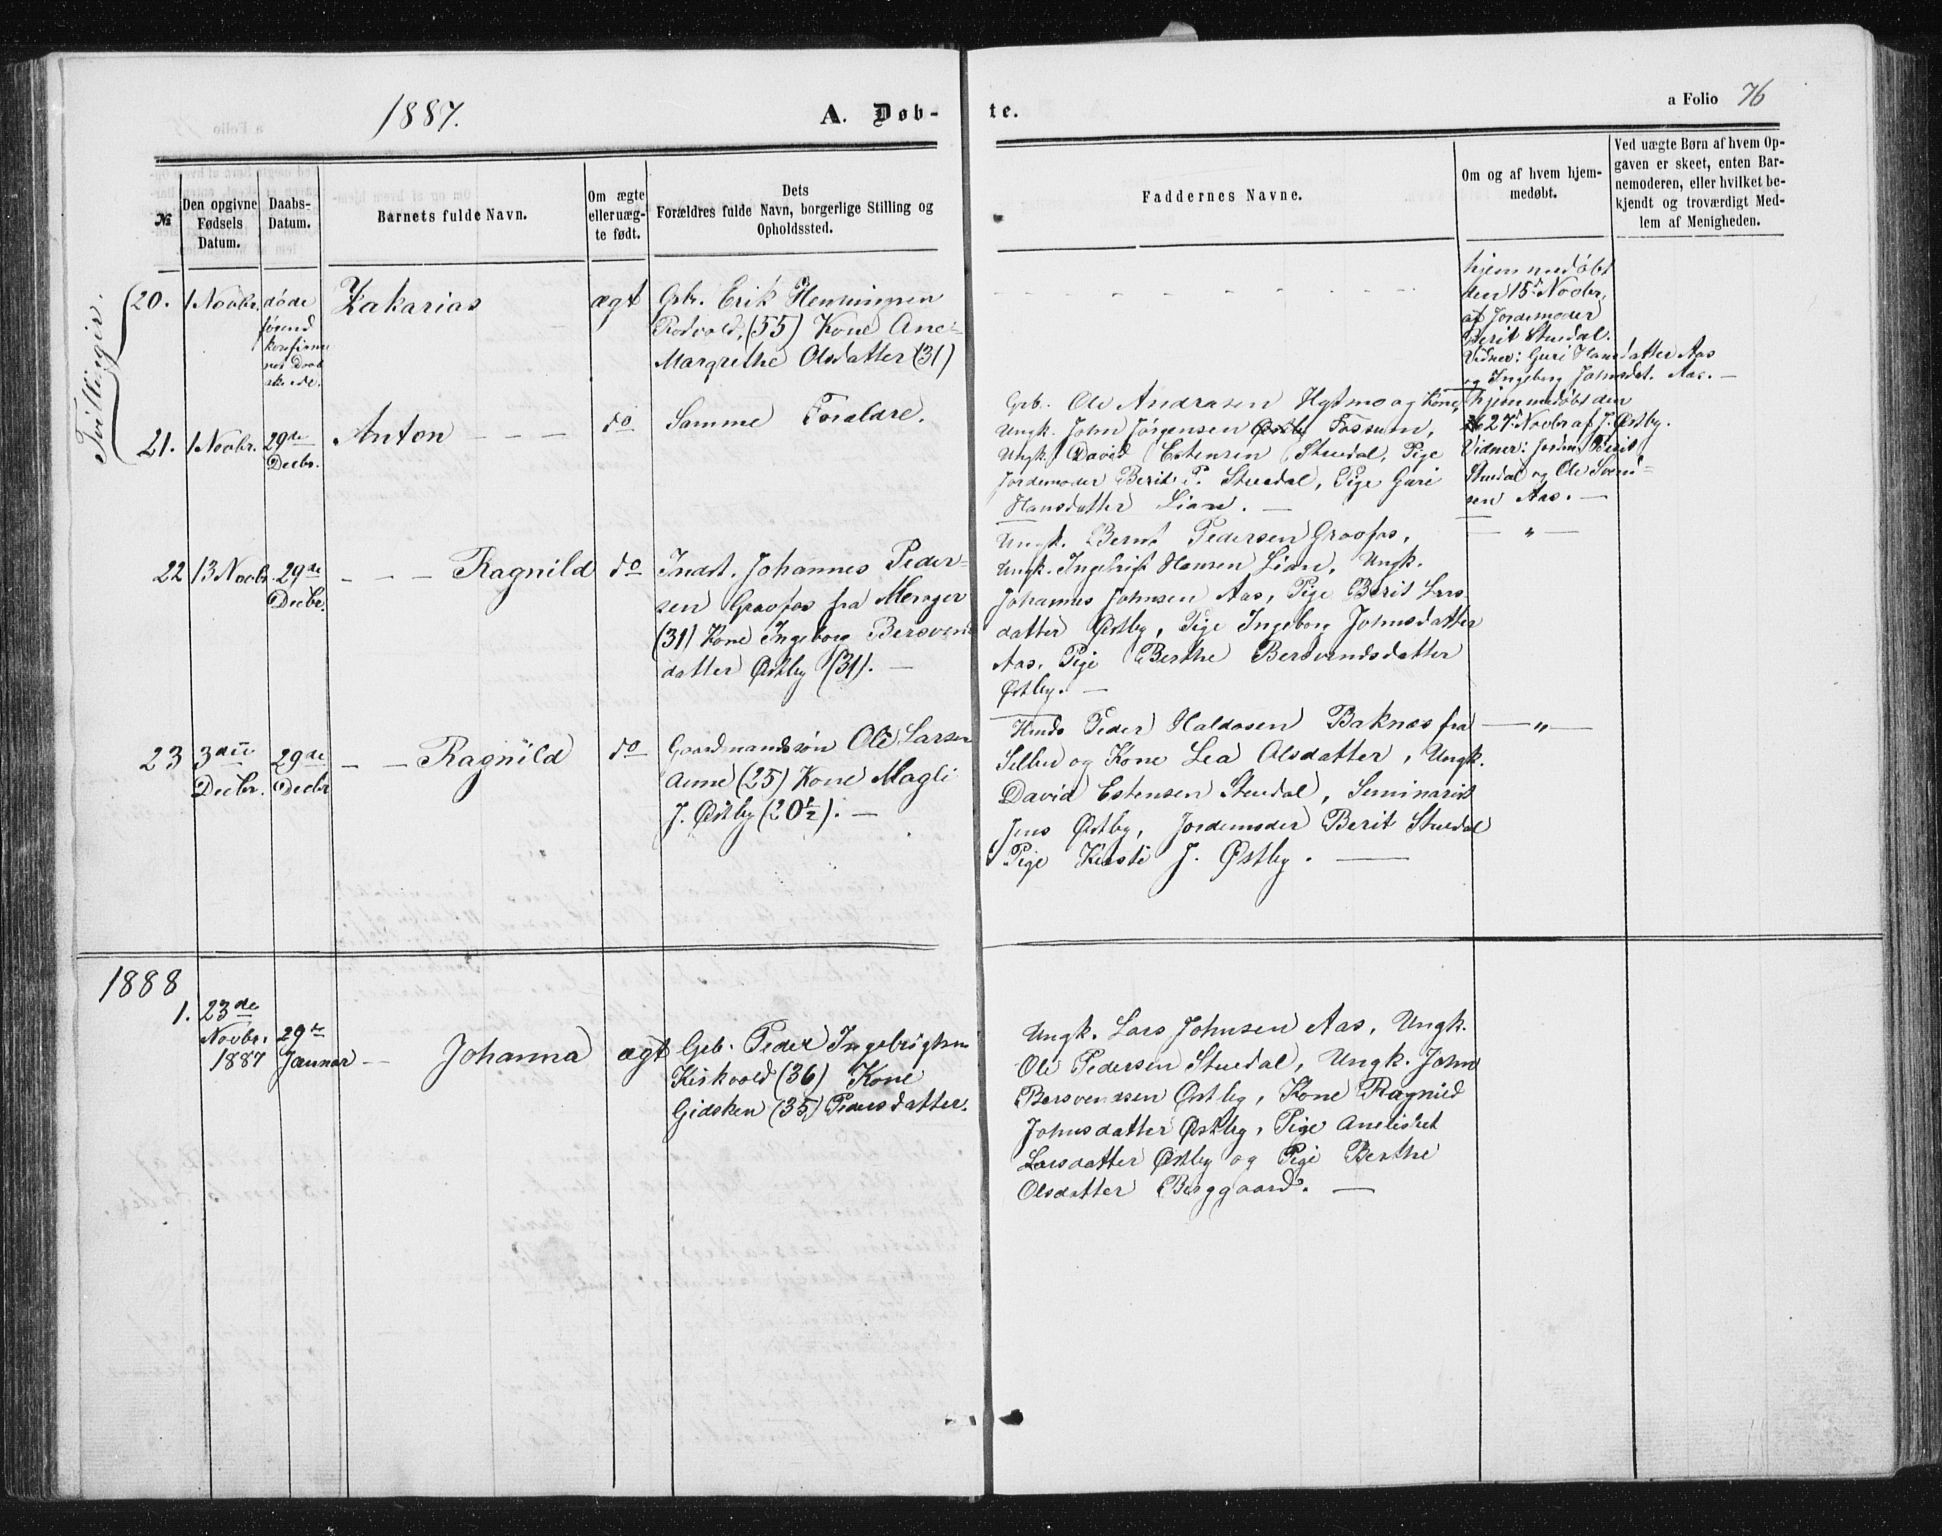 1887.
A. Døb-
te.
a Folio 76
№
Den opgivne
Fødsels
Datum.
Daabs-
Datum.
Barnets fulde Navn.
Om ægte
eller uæg-
te født.
Dets
Forældres fulde Navn, borgerlige Stilling og
Opholdssted.
Faddernes Navne.
Om og af hvem hjem-
medøbt.
Ved uægte Børn af hvem Op-
gaven er skeet, enten Bar-
nemoderen, eller hvilket be-
kjendt og troværdigt Med-
lem af Menigheden.
Tvillinger.
20.
1 Novbr.
døde
førend
Zakarias
ægt
Gbr. Erik Hemmingsen
(55) Kone Ane
Margrethe Olsdatter (31)
hjemmedøbt
den 15de Novbr.
af Jordemoder
Berit Stuedal.
Vidner: Guri Hansdatter Aas
og Ingeborg Johnsdat. Aas. —
21.
1 Novbr.
29de
Decbr.
Anton - - -
do
Samme Forældre.
Grb. Ole Andrasen Hytmo og Kone,
Ungk. John Jørgensen Fossum,
Ungk. David Estensen Stuedal, Pige
Jordemoder Berit P. Stuedal, Pige Guri
Hansdatter Lian. —
hjemmedøbt den
27de Novbr af J. Østby.
Vidner: Jordm. Berit
Stuedal og Ole Svend-
sen Aas. —
22
13 Novbr.
29de
Decbr.
- - - Ragnild
do
Indst. Johannes Peder-
sen Graafos fra
(31) Kone Ingeborg Bersvens
datter Østby (31). —
Ungk. Bernt Pedersen Graafos,
Ungk. Ingebrigt Hansen Lian, Ungk.
Johannes Johnsen Aas, Pige Berit Lars
datter Østby, Pige Ingeborg Johnsdatter
Aas. Pige Berthe Bersvendsdatter
Østby. —
— „ —
23
3die
Decbr.
29de
Decbr
- - Ragnild
do
Gaardmandssøn Ole Larsen
Aune (25) Kone Magli
J. Østby (20½). —
Peder Haldosen Baknæs fra
Selbu og Kone Lea Olsdatter, Ungk.
David Estensen Stuedal, Seminarist
Jens Østby, Jordemoder Berit Stuedal
Pige Kirsti J. Østby. —
— „ —
1888
1.
23de
Novbr.
1887
29de
Januar
— Johanna
ægt
Grb. Peder Ingebrigtsen
Kirkvold (36) Kone
Gidsken (35) Pedersdatter.
Ungk. Lars Johnsen Aas, Ungk.
Ole Pedersen Stuedal, Ungk. John
Bersvendsen Østby, Kone Ragnild
Johnsdatter Østby, Pige Anelisbet
Larsdatter Østby og Pige Berthe
Olsdatter Berggaard. —